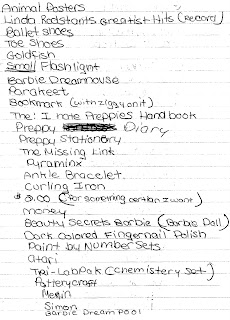 Animal Posters
Linda Rodstants Greatist Hits (Record)
Ballet shoes
Toe Shoes
Goldfish
Small Flashlight
Barbie Dreamhouse
Parakeet
Bookmark (with ziggy on it)
The: I hate Preppies Handbook
Preppy Diary
Preppy Stationary
The Missing Link
Pyraminx
Ankle Bracelet
Curling Iron
$ 9.00 (For something certian I want)
money
Beauty Secrets Barbie (Barbie Doll)
Dark Colored Fingernail Polish
Paint by Number Sets
Atari
Tri-LabPak (Chemistery set)
Potterycraft
Merlin
Simon
Barbie Dream Pool